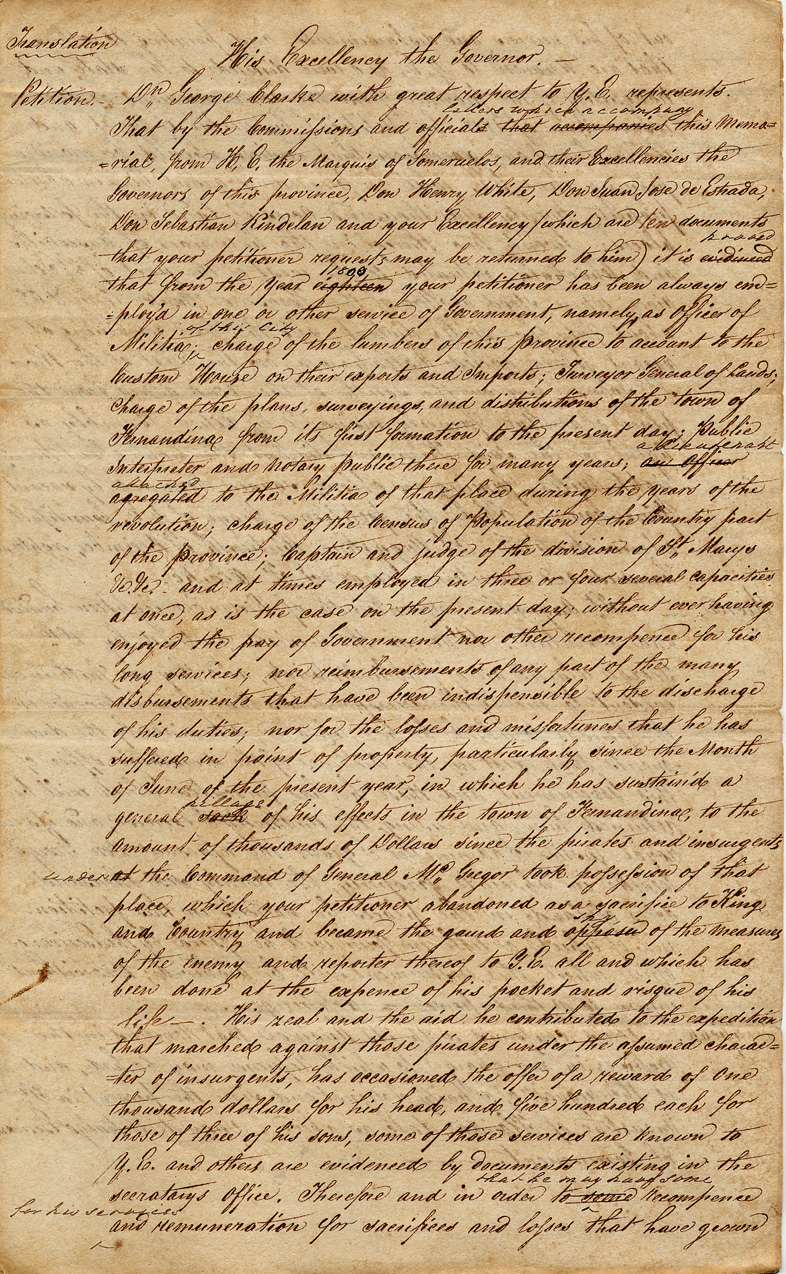 Translation
His Excellency the Governor. —
Petition. Dn. George Clarke with great respect to Y.E. represents.
letters which accompany
That by the Commissions and officials that accompanies this Memo=
=rial, from H. E. the Marquis of Someruelos, and their Excellencies the
Governors of this province, Don Henry White, Don Juan Jose de Estrada,
Don Sebastian Kindelan and your Excellency (which are ten documents
proved
that your petitioner requests may be returned to him) it is evidenced
1800
that from the year eighteen your petitioner has been always em=
=ploy'd in one or other service of Government, namely, as officer of
of this City
Militia; charge of the lumbers of this province to account to the
Custom House on their exports and Imports; Surveyor General of Lands;
Charge of the plans, surveyings, and distributions of the town of
Fernandina from its first formation to the present day; Public
Interpreter and notary public there for many years; an officer
attached
agregated to the Militia of that place during the years of the
revolution; charge of the Census of Population of the Country part
of the province; Captain and judge of the division of St. Marys
&c. &c. and at times employed in three or four several capacities
at once, as is the case on the present day; without ever having
enjoyed the pay of Government nor other recompence for his
long services; nor reimbursements of any part of the many
disbursements that have been indispensible to the discharge
of his duties; nor for the losses and misfortunes that he has
suffered in point of property, particularly since the Month
of June of the present year, in which he has sustain'd a
pillage
general sack of his effects in the town of Fernandina, to the
amount of thousands of Dollars since the pirates and insurgents
under at the Command of General Mc. Gregor took possession of that
place, which your petitioner abandoned as a sacrifice to King
spy
and Country, and became the guard and of the measures
of the enemy and reporter thereof to Y.E. all and which has
been done at the expence of his pocket and risque of his
life —. His zeal and the aid he contributed to the expedition
that marched against those pirates under the assumed charac=
=ter of insurgents, has occasioned the offer of a reward of one
thousand dollars for his head, and five hundred each for
those of three of his sons, some of those services are known to
Y.E. and others are evidenced by documents existing in the
that he may have some
secretarys office. Therefore and in order to some recompence
for his services
and remuneration for sacrifices and losses that have grown